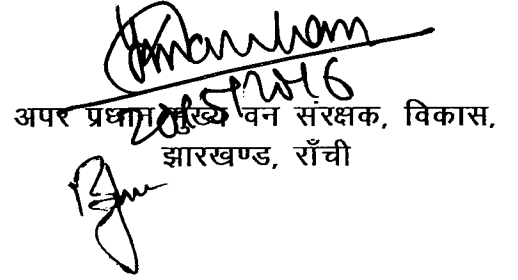 20/5/2016
अपर प्रधान मुख्य वन संरक्षक, विकास,
झारखण्ड, राँची